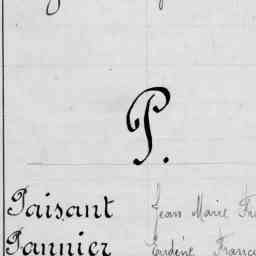 P.
Paisant Jean Marie
Pannier Eugène